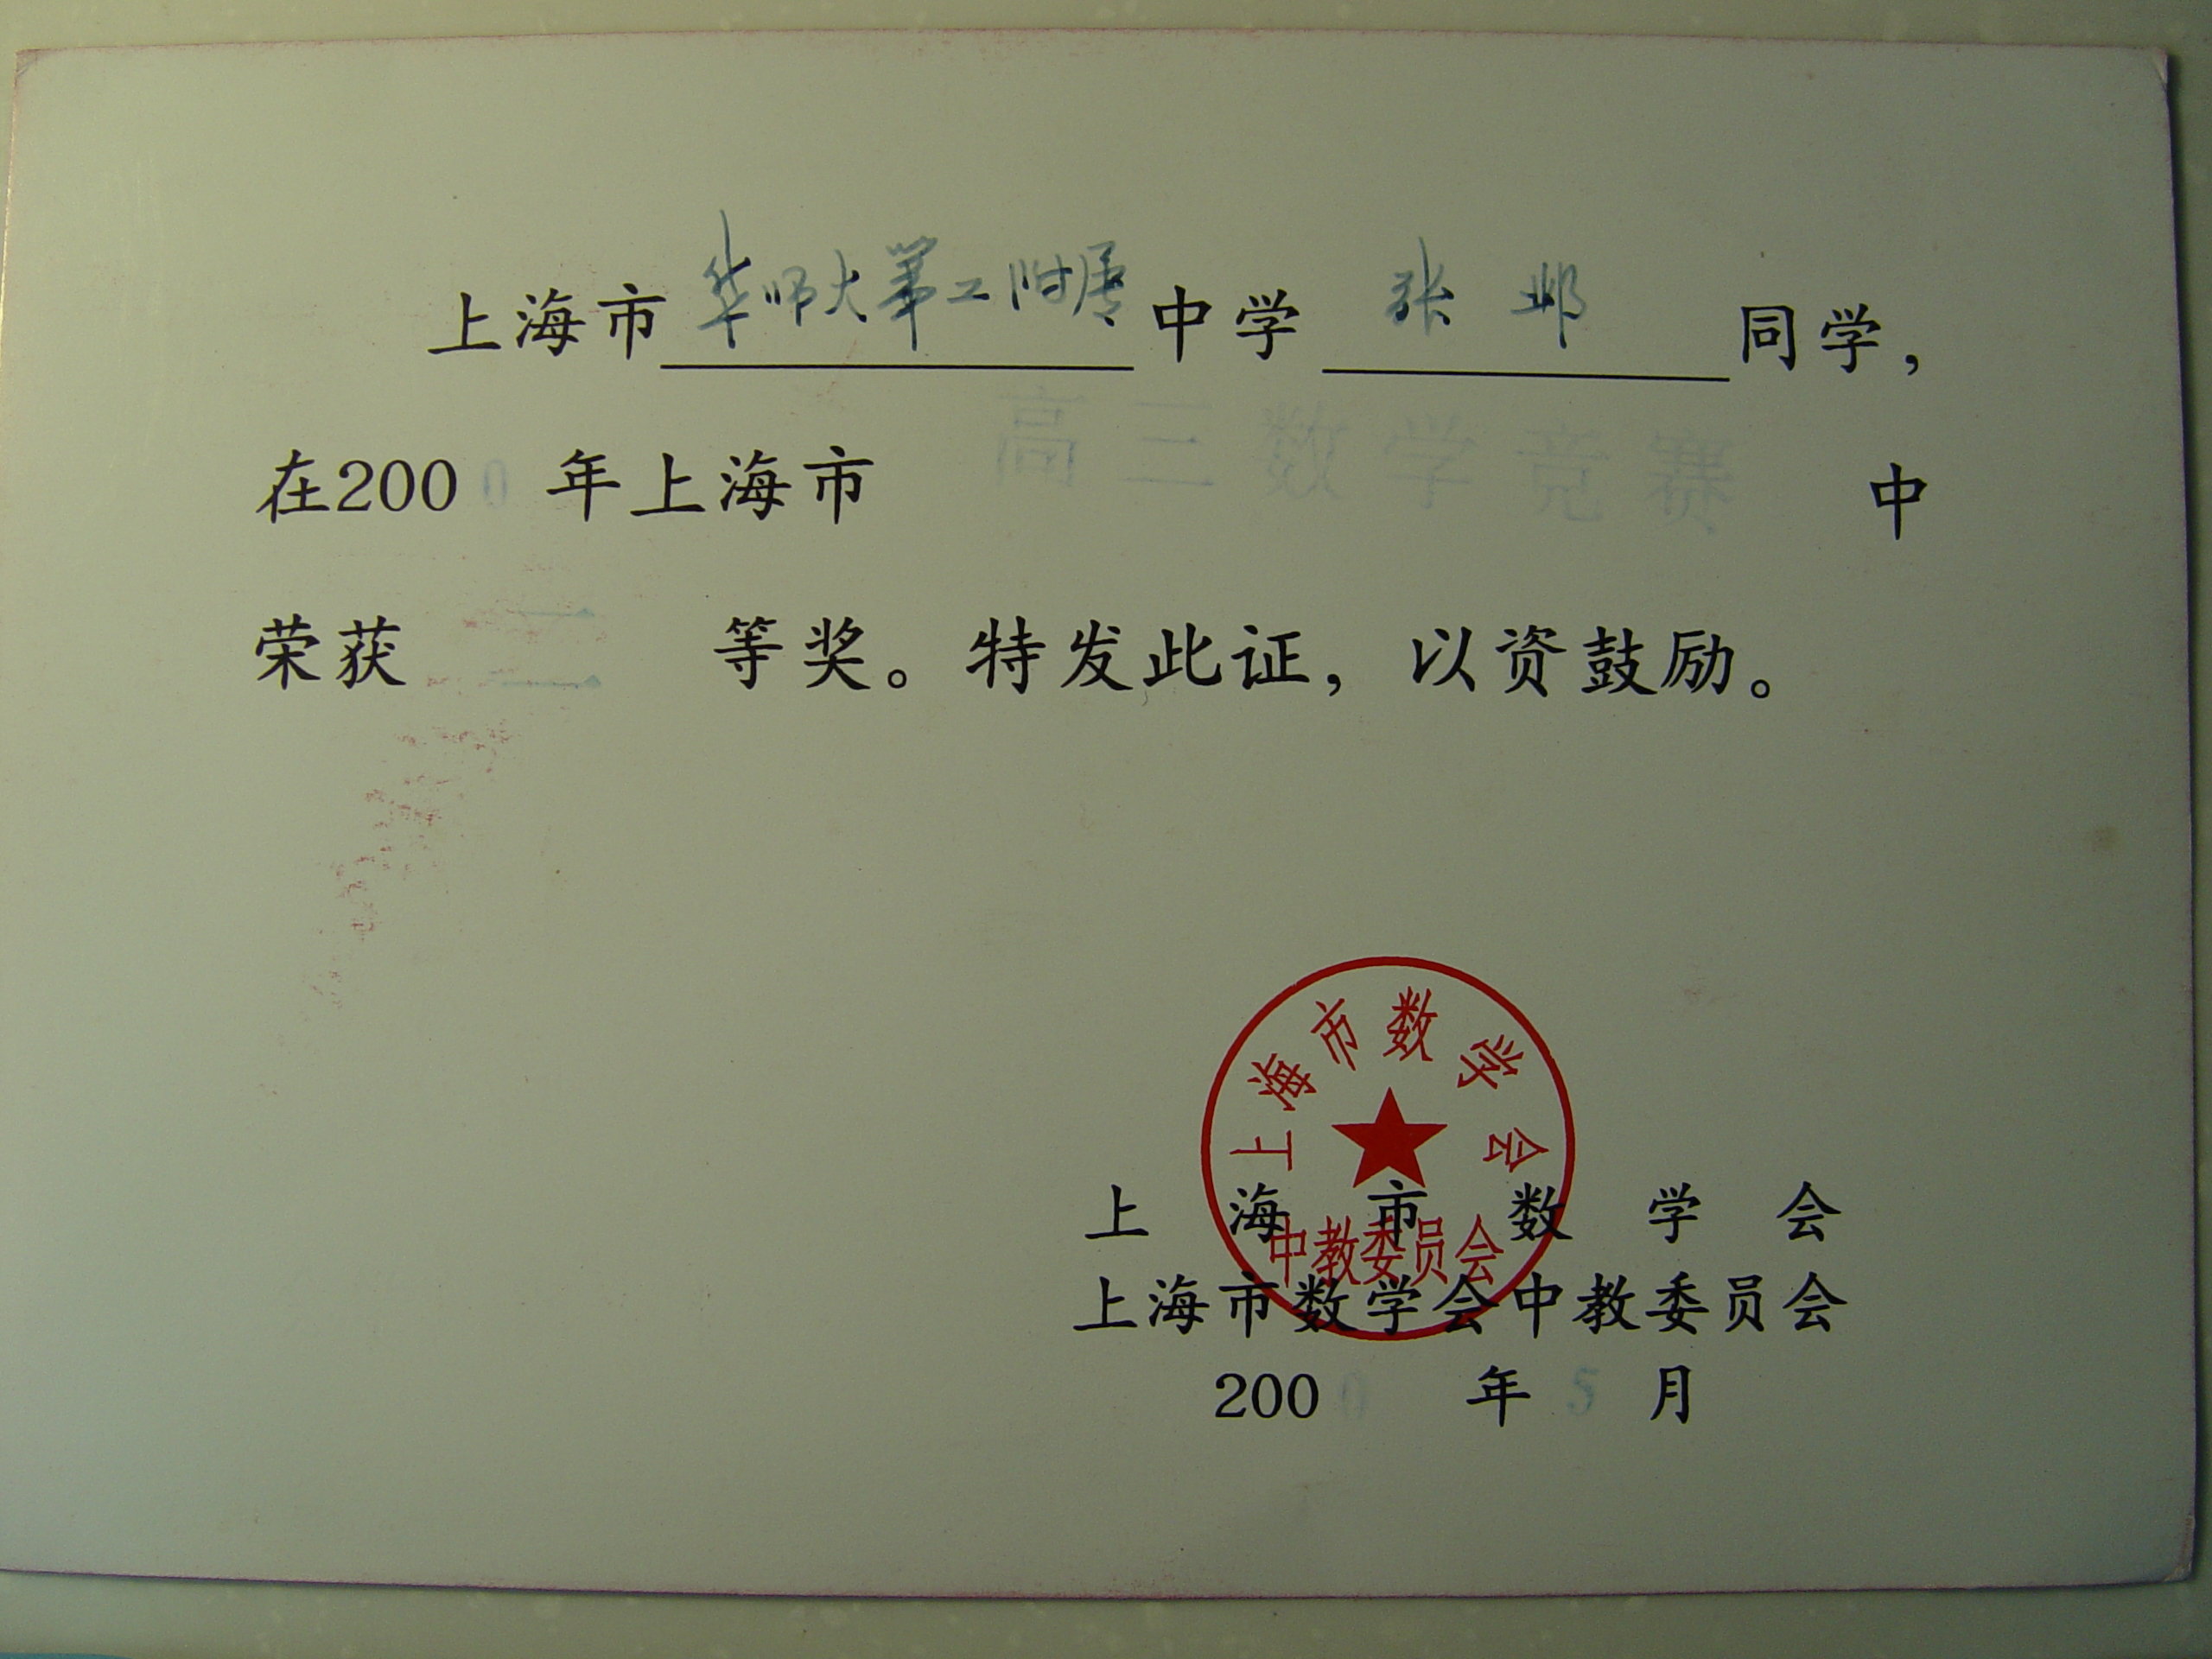 上海市华师大第二附属中学 张邺 同学，
在2000年上海市 高三数学竞赛 中
荣获 二 等奖。特发此证，以资鼓励。
上海市数学会
中教委员会
上海市数学会
上海市数学会中教委员会
2000年5月